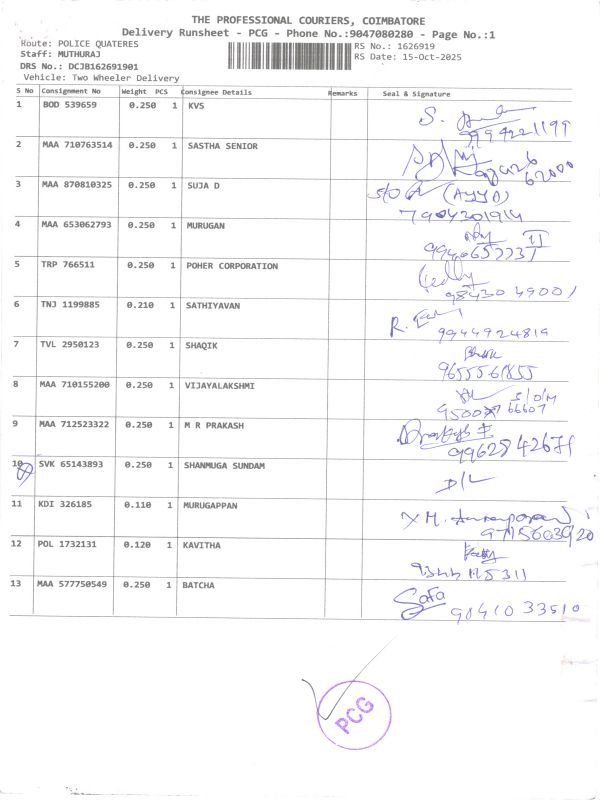 THE PROFESSIONAL COURIERS, COIMBATORE
Delivery Runsheet - PCG - Phone No.:9047080280 - Page No.:1
Route: POLICE QUATERES
Staff: MUTHURAJ
RS No.: 1626919
RS Date: 15-Oct-2025
DRS No.: DCJB162691901
Vehicle: Two Wheeler Delivery
S No Consignment No Weight PCS Consignee Details Remarks Seal & Signature
1 BOD 539659 0.250 1 KVS
S.
9994221199
2 MAA 710763514 0.250 1 SASTHA SENIOR
62000
3 MAA 870810325 0.250 1 SUJA D
S/O (AYYA)
7904201914
4 MAA 653062793 0.250 1 MURUGAN
5 TRP 766511 0.250 1 POHER CORPORATION
9843049001
6 TNJ 1199885 0.210 1 SATHIYAVAN
R.
9944924819
7 TVL 2950123 0.250 1 SHAQIK
9655561855
8 MAA 710155200 0.250 1 VIJAYALAKSHMI
9 MAA 712523322 0.250 1 M R PRAKASH
9962842671
10 SVK 65143893 0.250 1 SHANMUGA SUNDAM
D/L
11 KDI 326185 0.110 1 MURUGAPPAN
12 POL 1732131 0.120 1 KAVITHA
13 MAA 577750549 0.250 1 BATCHA
Safa
9841033510
PCG